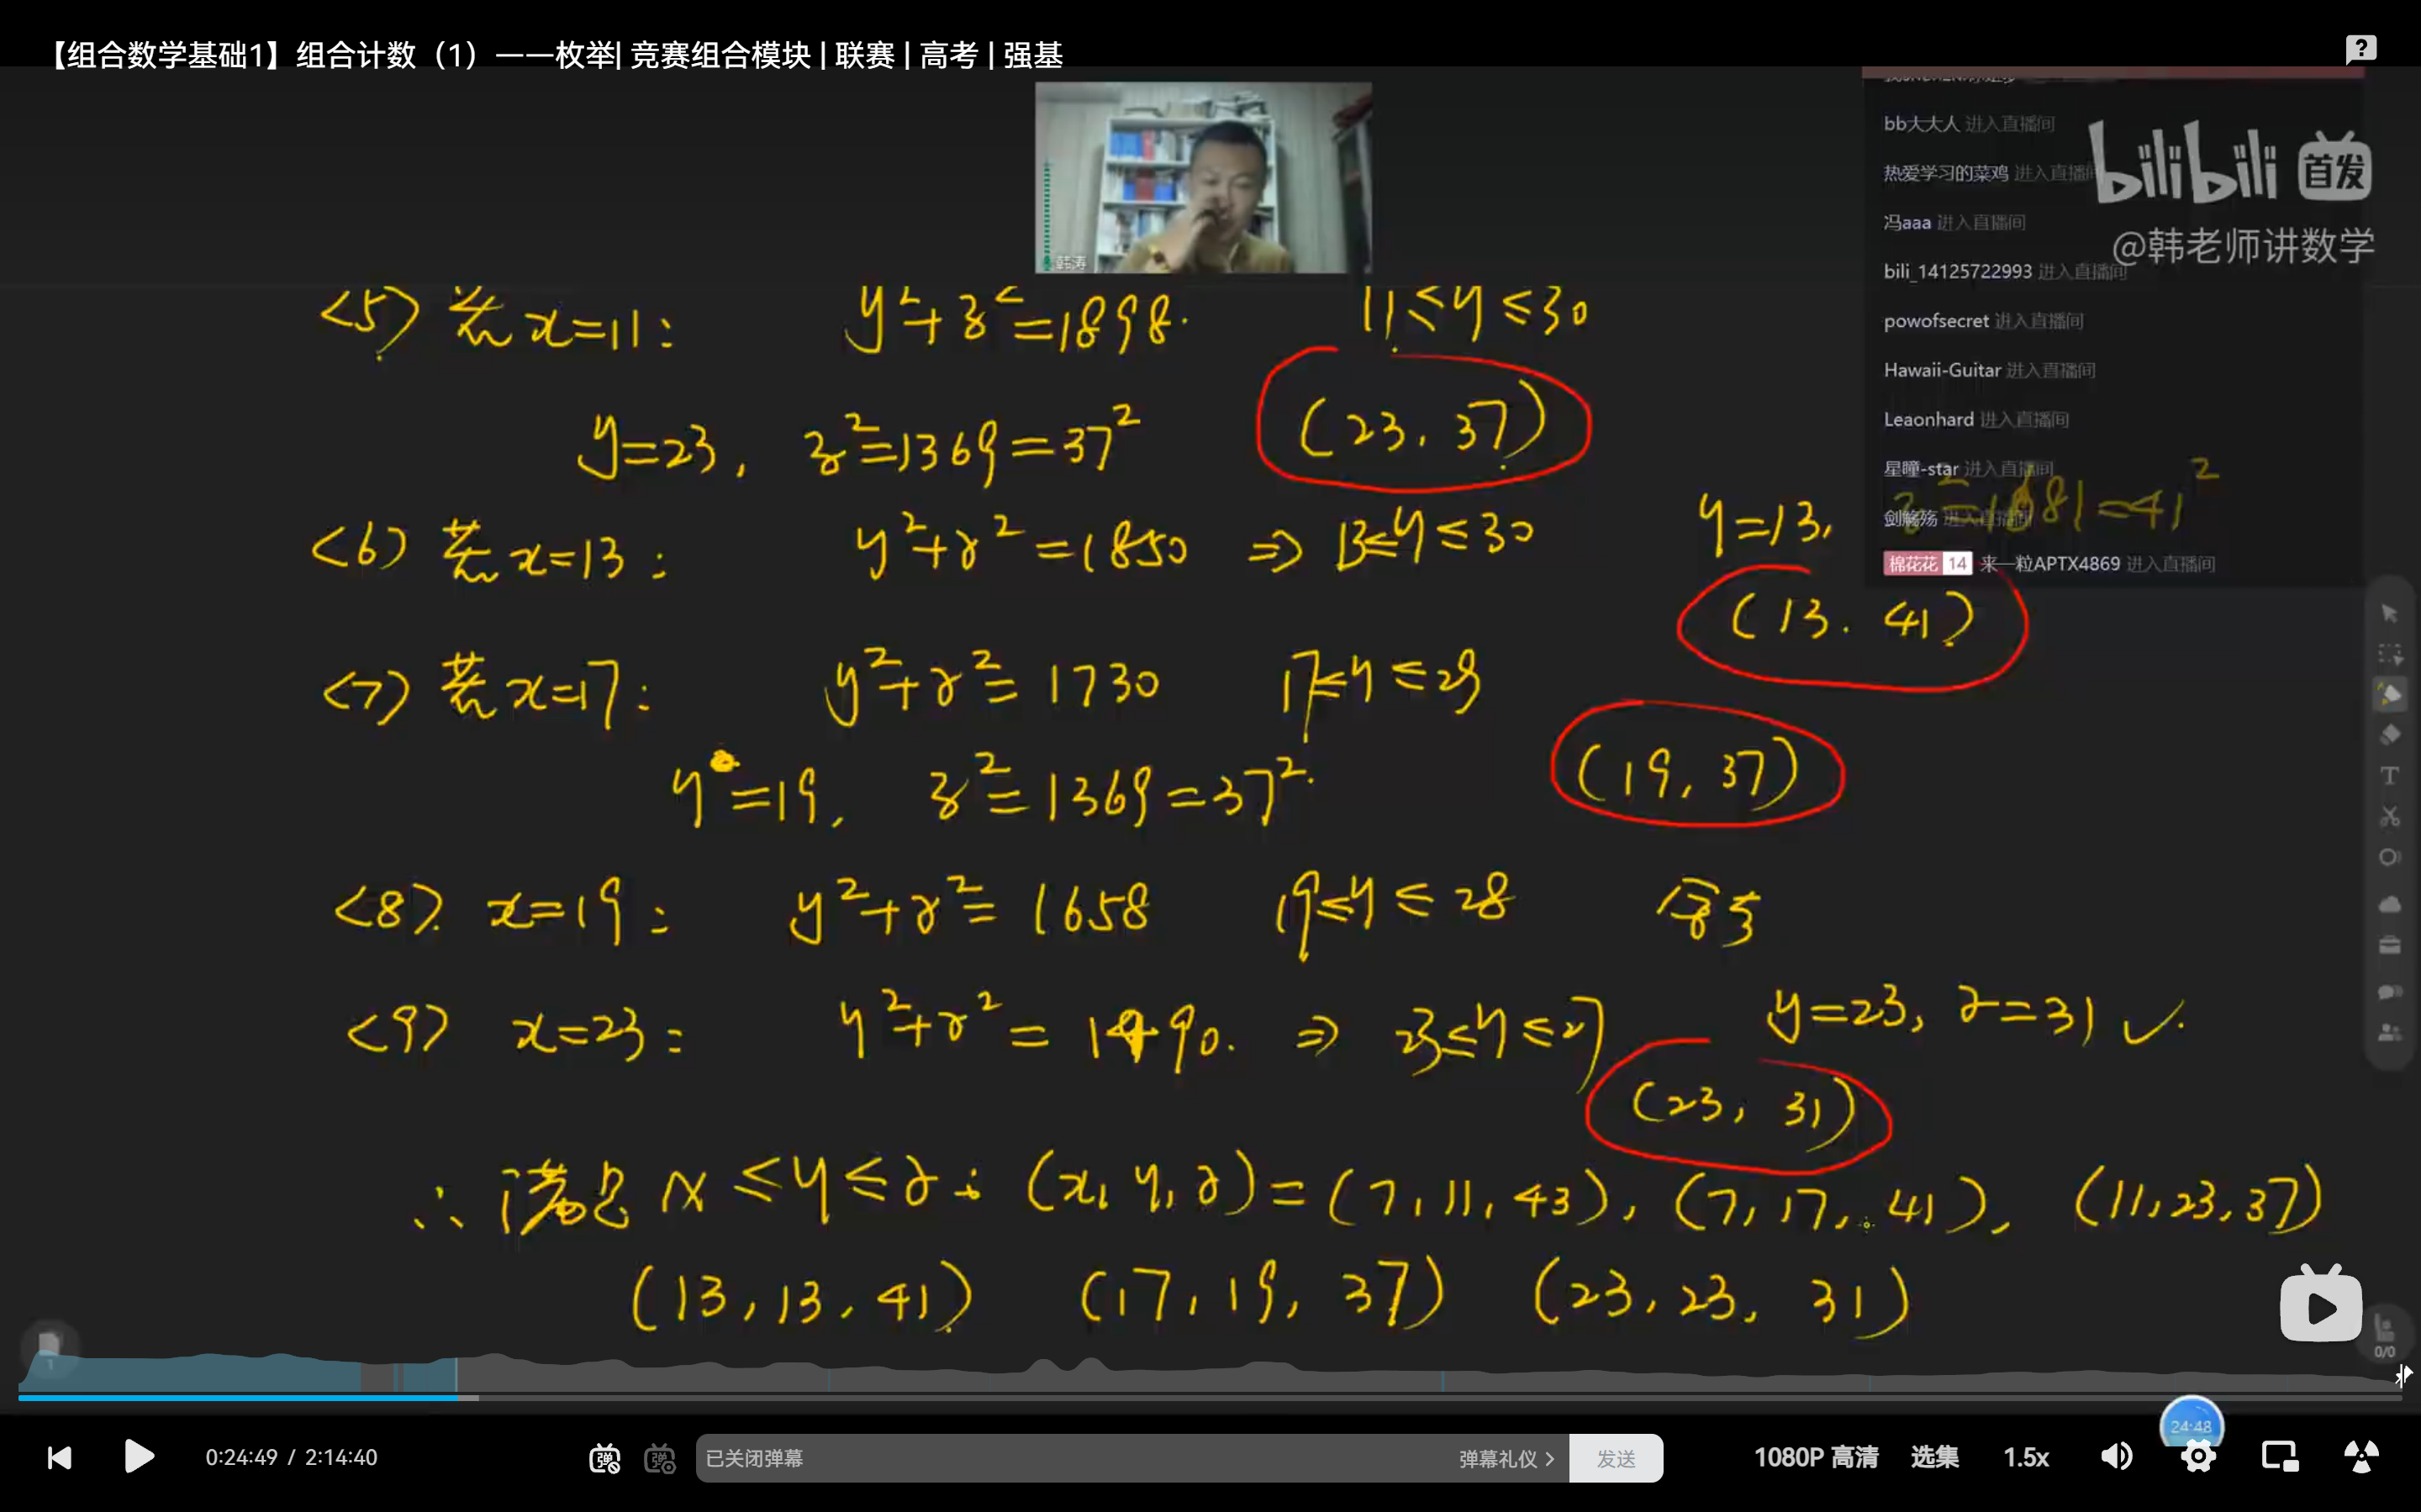 【组合数学基础1】组合计数（1）——枚举| 竞赛组合模块 | 联赛 | 高考 | 强基
bb大大人 进入直播间
热爱学习的菜鸡 进入直播间
冯aaa 进入直播间
bili_14125722993 进入直播间
powofsecret 进入直播间
Hawaii-Guitar 进入直播间
Leaonhard 进入直播间
星曈-star 进入直播间
进入直播间
棉花花 14 来一粒APTX4869 进入直播间
bilibili 首发
@韩老师讲数学
韩涛
<5> 若 x=11: y²+z²=1898. 11≤y≤30
y=23, z²=1369=37² (23, 37)
<6> 若 x=13: y²+z²=1850 ⇒ 13≤y≤30 y=13, z²=1681=41²
(13. 41)
<7> 若 x=17: y²+z²=1730 17≤y≤29
y=19, z²=1369=37². (19, 37)
<8>. x=19: y²+z²=1658 19≤y≤28
<9> x=23: y²+z²=1490. ⇒ 23≤y≤27 y=23, z=31 ✓.
(23, 31)
∴ 满足 x≤y≤z: (x, y, z)=(7, 11, 43), (7, 17, 41), (11, 23, 37)
(13, 13, 41) (17, 19, 37) (23, 23, 31)
1
0/0
24:48
0:24:49 / 2:14:40
弹 弹
已关闭弹幕
弹幕礼仪 >
发送
1080P 高清
选集
1.5x